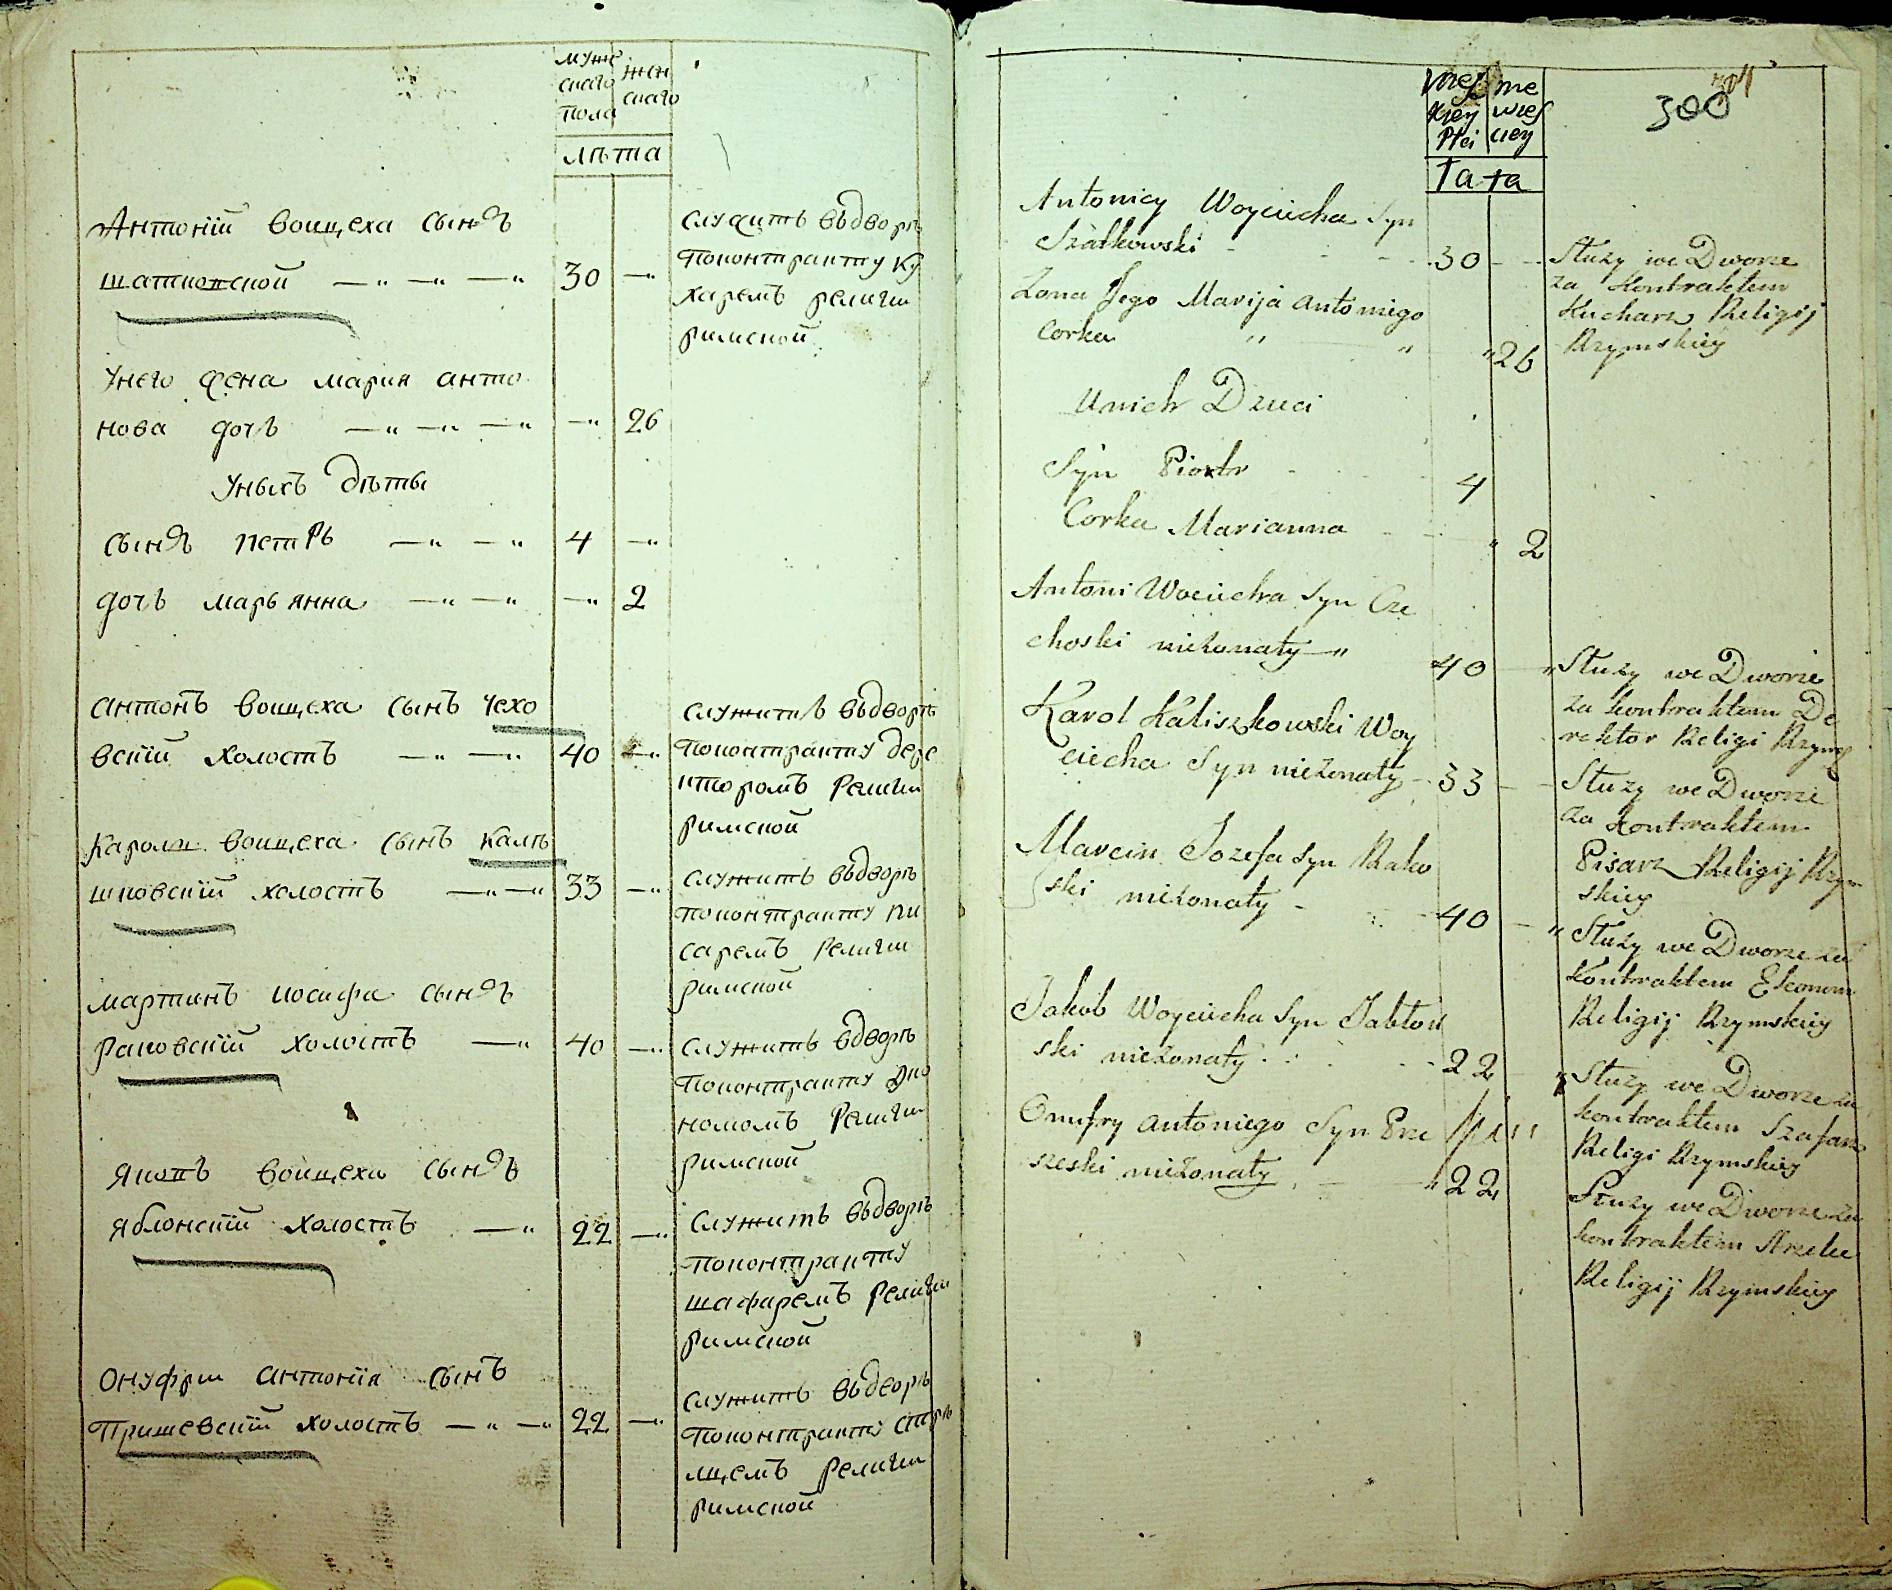 муже
скаго
пола
жен
скаго
лѣта
Антоній воицеха сынъ
шатковской 30
служитъ въдворѣ
поконтракту ку
харемъ религіи
римской
унего жена мария анто
нова дочь 26
уныхъ дѣты
сынъ петръ 4
дочь марьянна 2
антонъ воицеха сынъ чехо
вскій холостъ 40
служитъ въдворѣ
поконтракту дере
кторомъ религіи
римской
Кароль воицеха сынъ калѣ
шковскій холостъ 33
служитъ въдворѣ
поконтракту пи
саремъ религіи
римской
мартинъ иосифа сынъ
раковскій холостъ 40
служитъ вдворѣ
поконтракту эко
номомъ религіи
римской
якопъ воицеха сынъ
яблонскій холостъ 22
служитъ въдворѣ
поконтракту
шафаремъ религіи
римской
онуфри антонія сынъ
пришевскій холостъ 22
служитъ въдворѣ
поконтракту стрѣ
лцемъ религіи
римской
300
męs
kiey
Płci
Lata
Antoniey Woyciecha Syn
Szatkowski 30
Służy we Dworze
za kontraktem
Kucharz Religij
Rzymskiey
Zona Jego Maryja Antoniego
Corka 26
U nich Dzieci
Syn Piotr 4
Corka Marianna 2
Antoni Wociecha Syn Cze
choski nieżonaty 40
Służy we Dworze
za kontraktem De
rektor Religi Rzyms
Karol Kaliszkowski Woy
ciecha Syn nieżonaty 33
Służy we Dworze
za kontraktem
Pisarz Religij Rzym
skiey
Marcin Jozefa Syn Rako
ski nieżonaty 40
Służy we Dworze za
Kontraktem Ekonom
Religij Rzymskiey
Jakob Woyciecha Syn Jabłoń
ski nieżonaty 22
Służy we Dworze za
kontraktem Szafarz
Religi Rzymskiey
Onufry Antoniego Syn Prze
szeski nieżonaty 22
Służy we Dworze za
kontraktem
Religij Rzymskiey